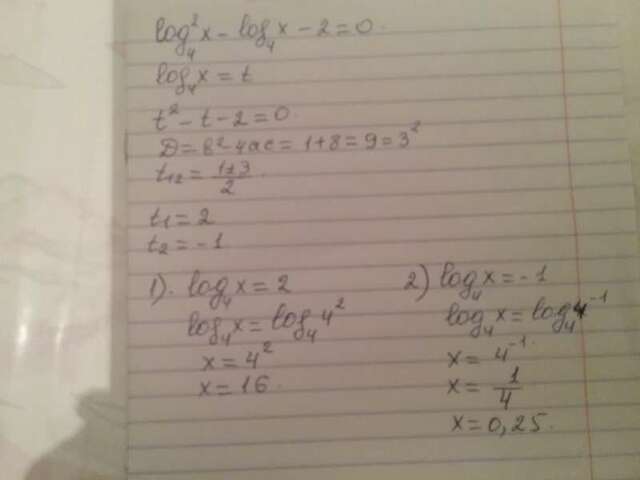 log₄²x - log₄x - 2 = 0.
log₄x = t
t² - t - 2 = 0.
D = b² - 4ac = 1 + 8 = 9 = 3²
t₁,₂ = (1±3)/2.
t₁ = 2
t₂ = -1
1). log₄x = 2
log₄x = log₄4²
x = 4²
x = 16.
2) log₄x = -1
log₄x = log₄4⁻¹
x = 4⁻¹.
x = 1/4
x = 0,25.